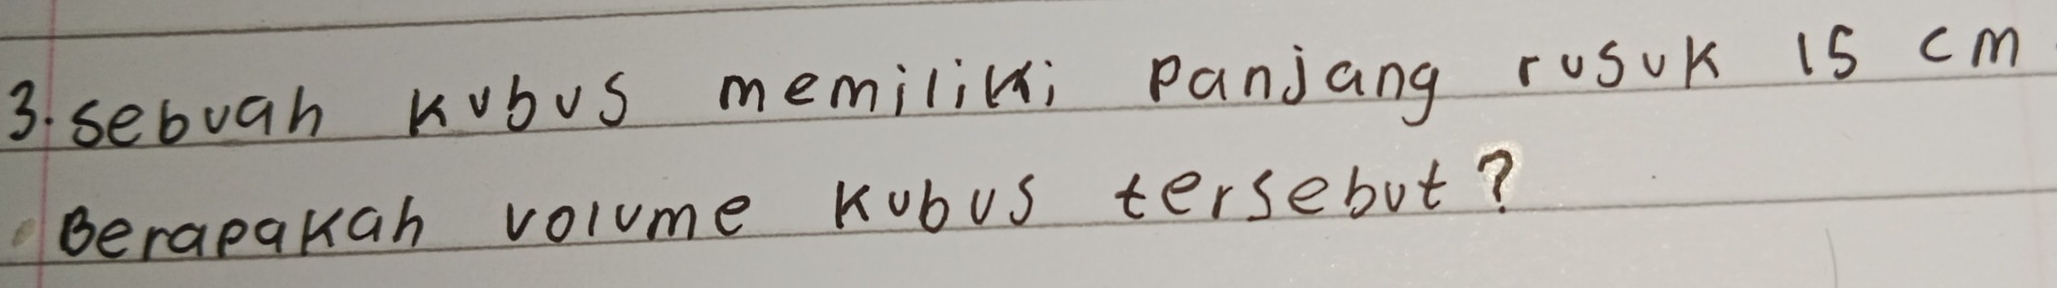 3. sebuah kubus memiliki panjang rusuk 15 cm
Berapakah volume kubus tersebut?